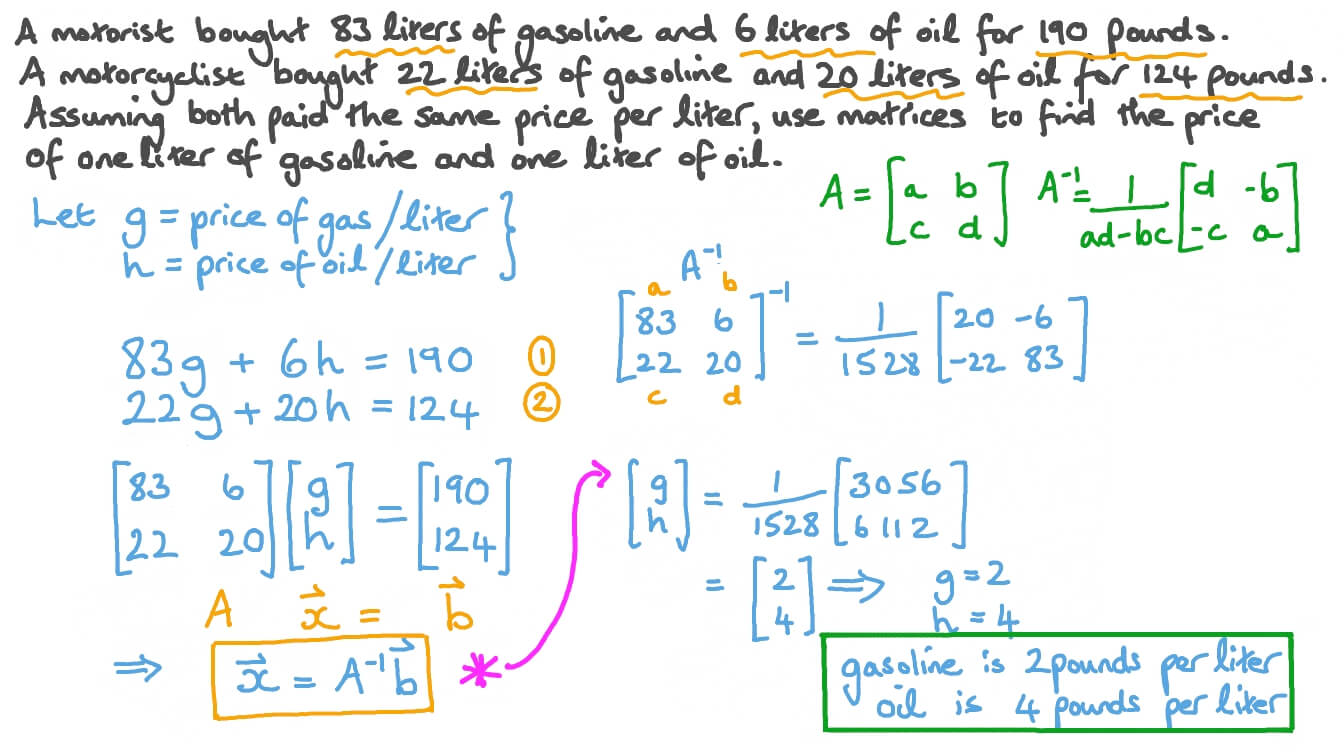 A motorist bought 83 liters of gasoline and 6 liters of oil for 190 pounds.
A motorcyclist bought 22 liters of gasoline and 20 liters of oil for 124 pounds.
Assuming both paid the same price per liter, use matrices to find the price
of one liter of gasoline and one liter of oil.
A = [a b
c d] A⁻¹ = 1/(ad-bc) [d -b
-c a]
Let g = price of gas/liter }
h = price of oil/liter
83g + 6h = 190 ①
22g + 20h = 124 ②
[83 6
22 20] [g
h] = [190
124]
A x⃗ = b⃗
⇒ x⃗ = A⁻¹b⃗ *
A⁻¹
a b
[83 6
22 20]⁻¹ = 1/1528 [20 -6
-22 83]
c d
[g
h] = 1/1528 [3056
6112]
= [2
4] ⇒ g = 2
h = 4
gasoline is 2 pounds per liter
oil is 4 pounds per liter